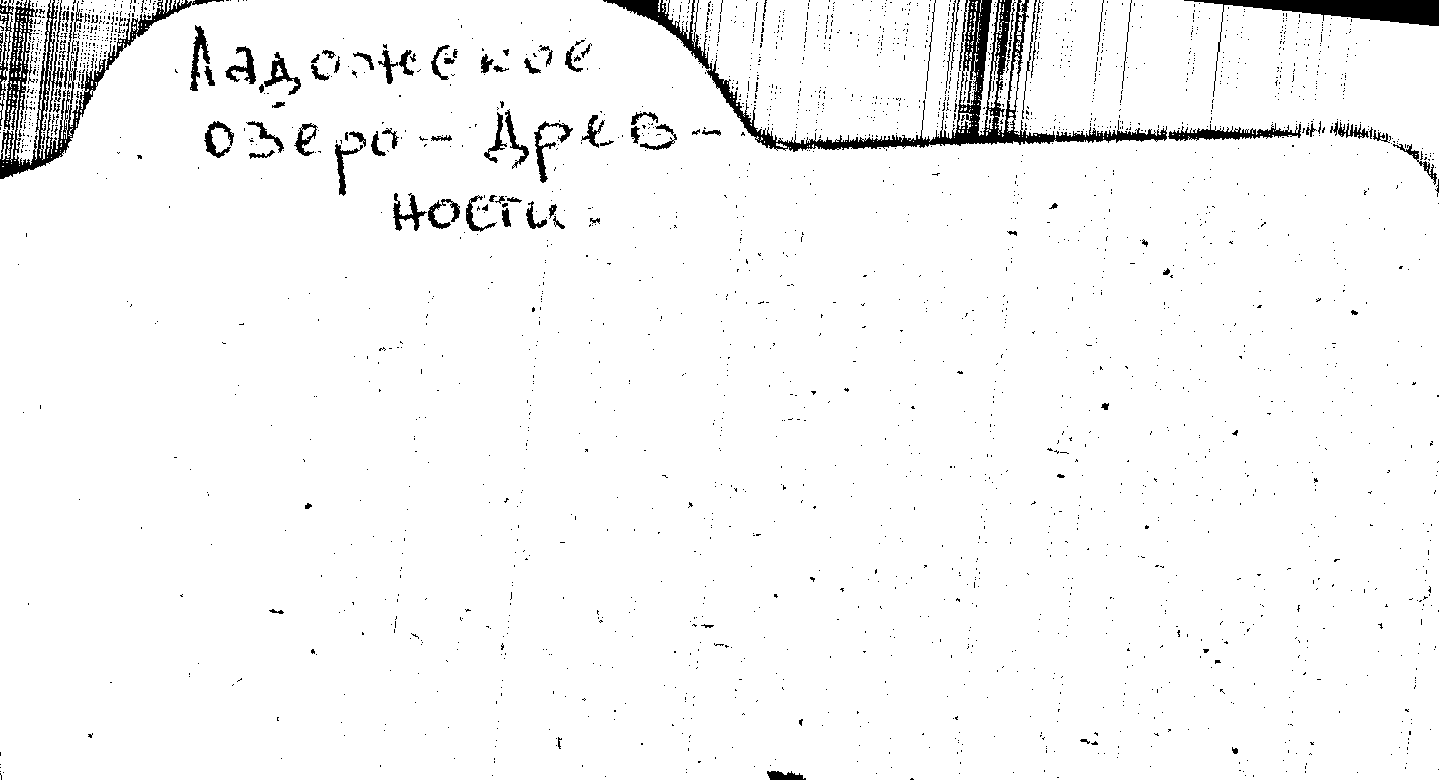 Ладожское
озеро - Древ-
ности.